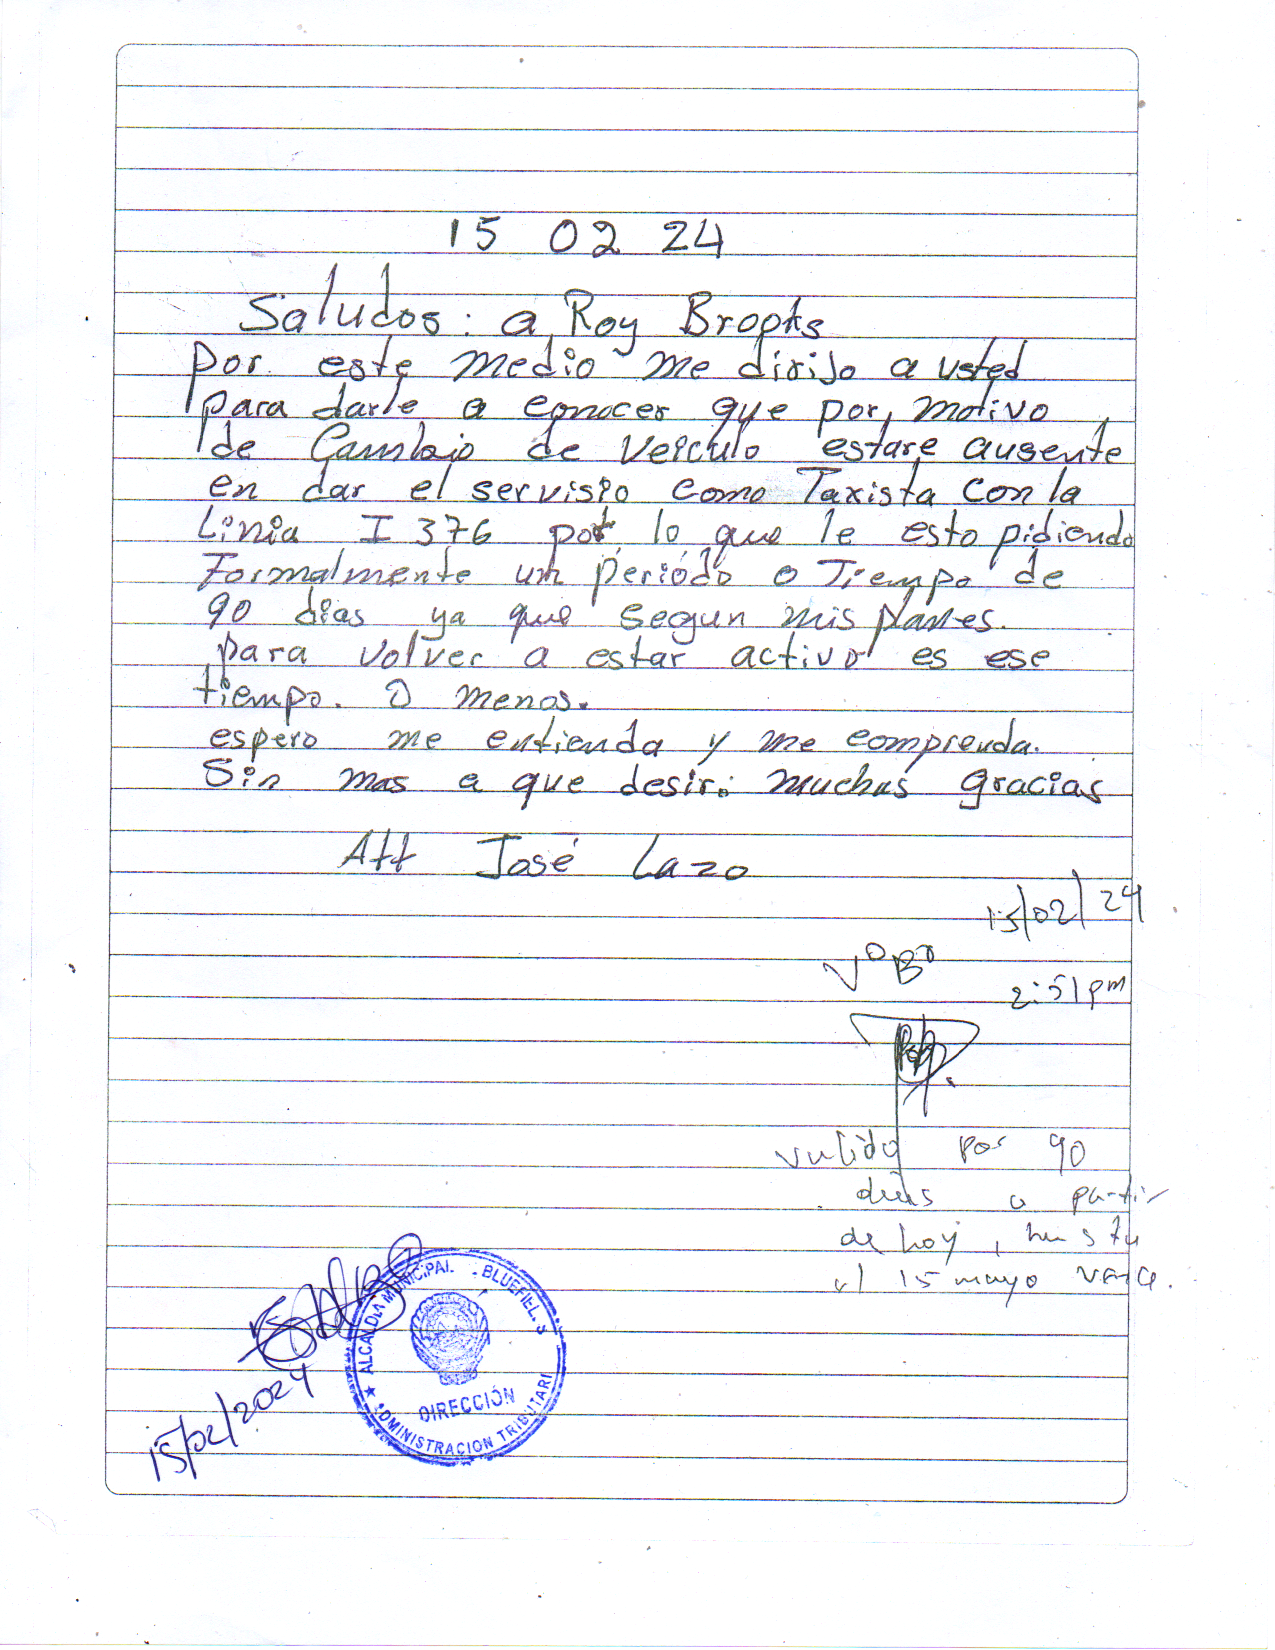 15 02 24
Saludos: a Roy Brooks
por este medio me dirijo a usted
para darle a conocer que por motivo
de Cambio de Veiculo estare ausente
en dar el servisio como Taxista con la
Linia I 376 por lo que le esto pidiendo
Formalmente um periódo o Tiempo de
90 dias ya que segun mis planes.
para volver a estar activo es ese
tiempo. O menos.
espero me entienda y me comprenda.
Sin mas a que desir: muchas gracias
Att José Lazo
15/02/24
V°B°
2:51pm
valido por 90
dias a partir
de hoy, hasta
el 15 mayo vence.
15/02/2024
★ ALCALDIA MUNICIPAL. - BLUEFIEL. S
DIRECCIÓN
ADMINISTRACION TRIBUTARI